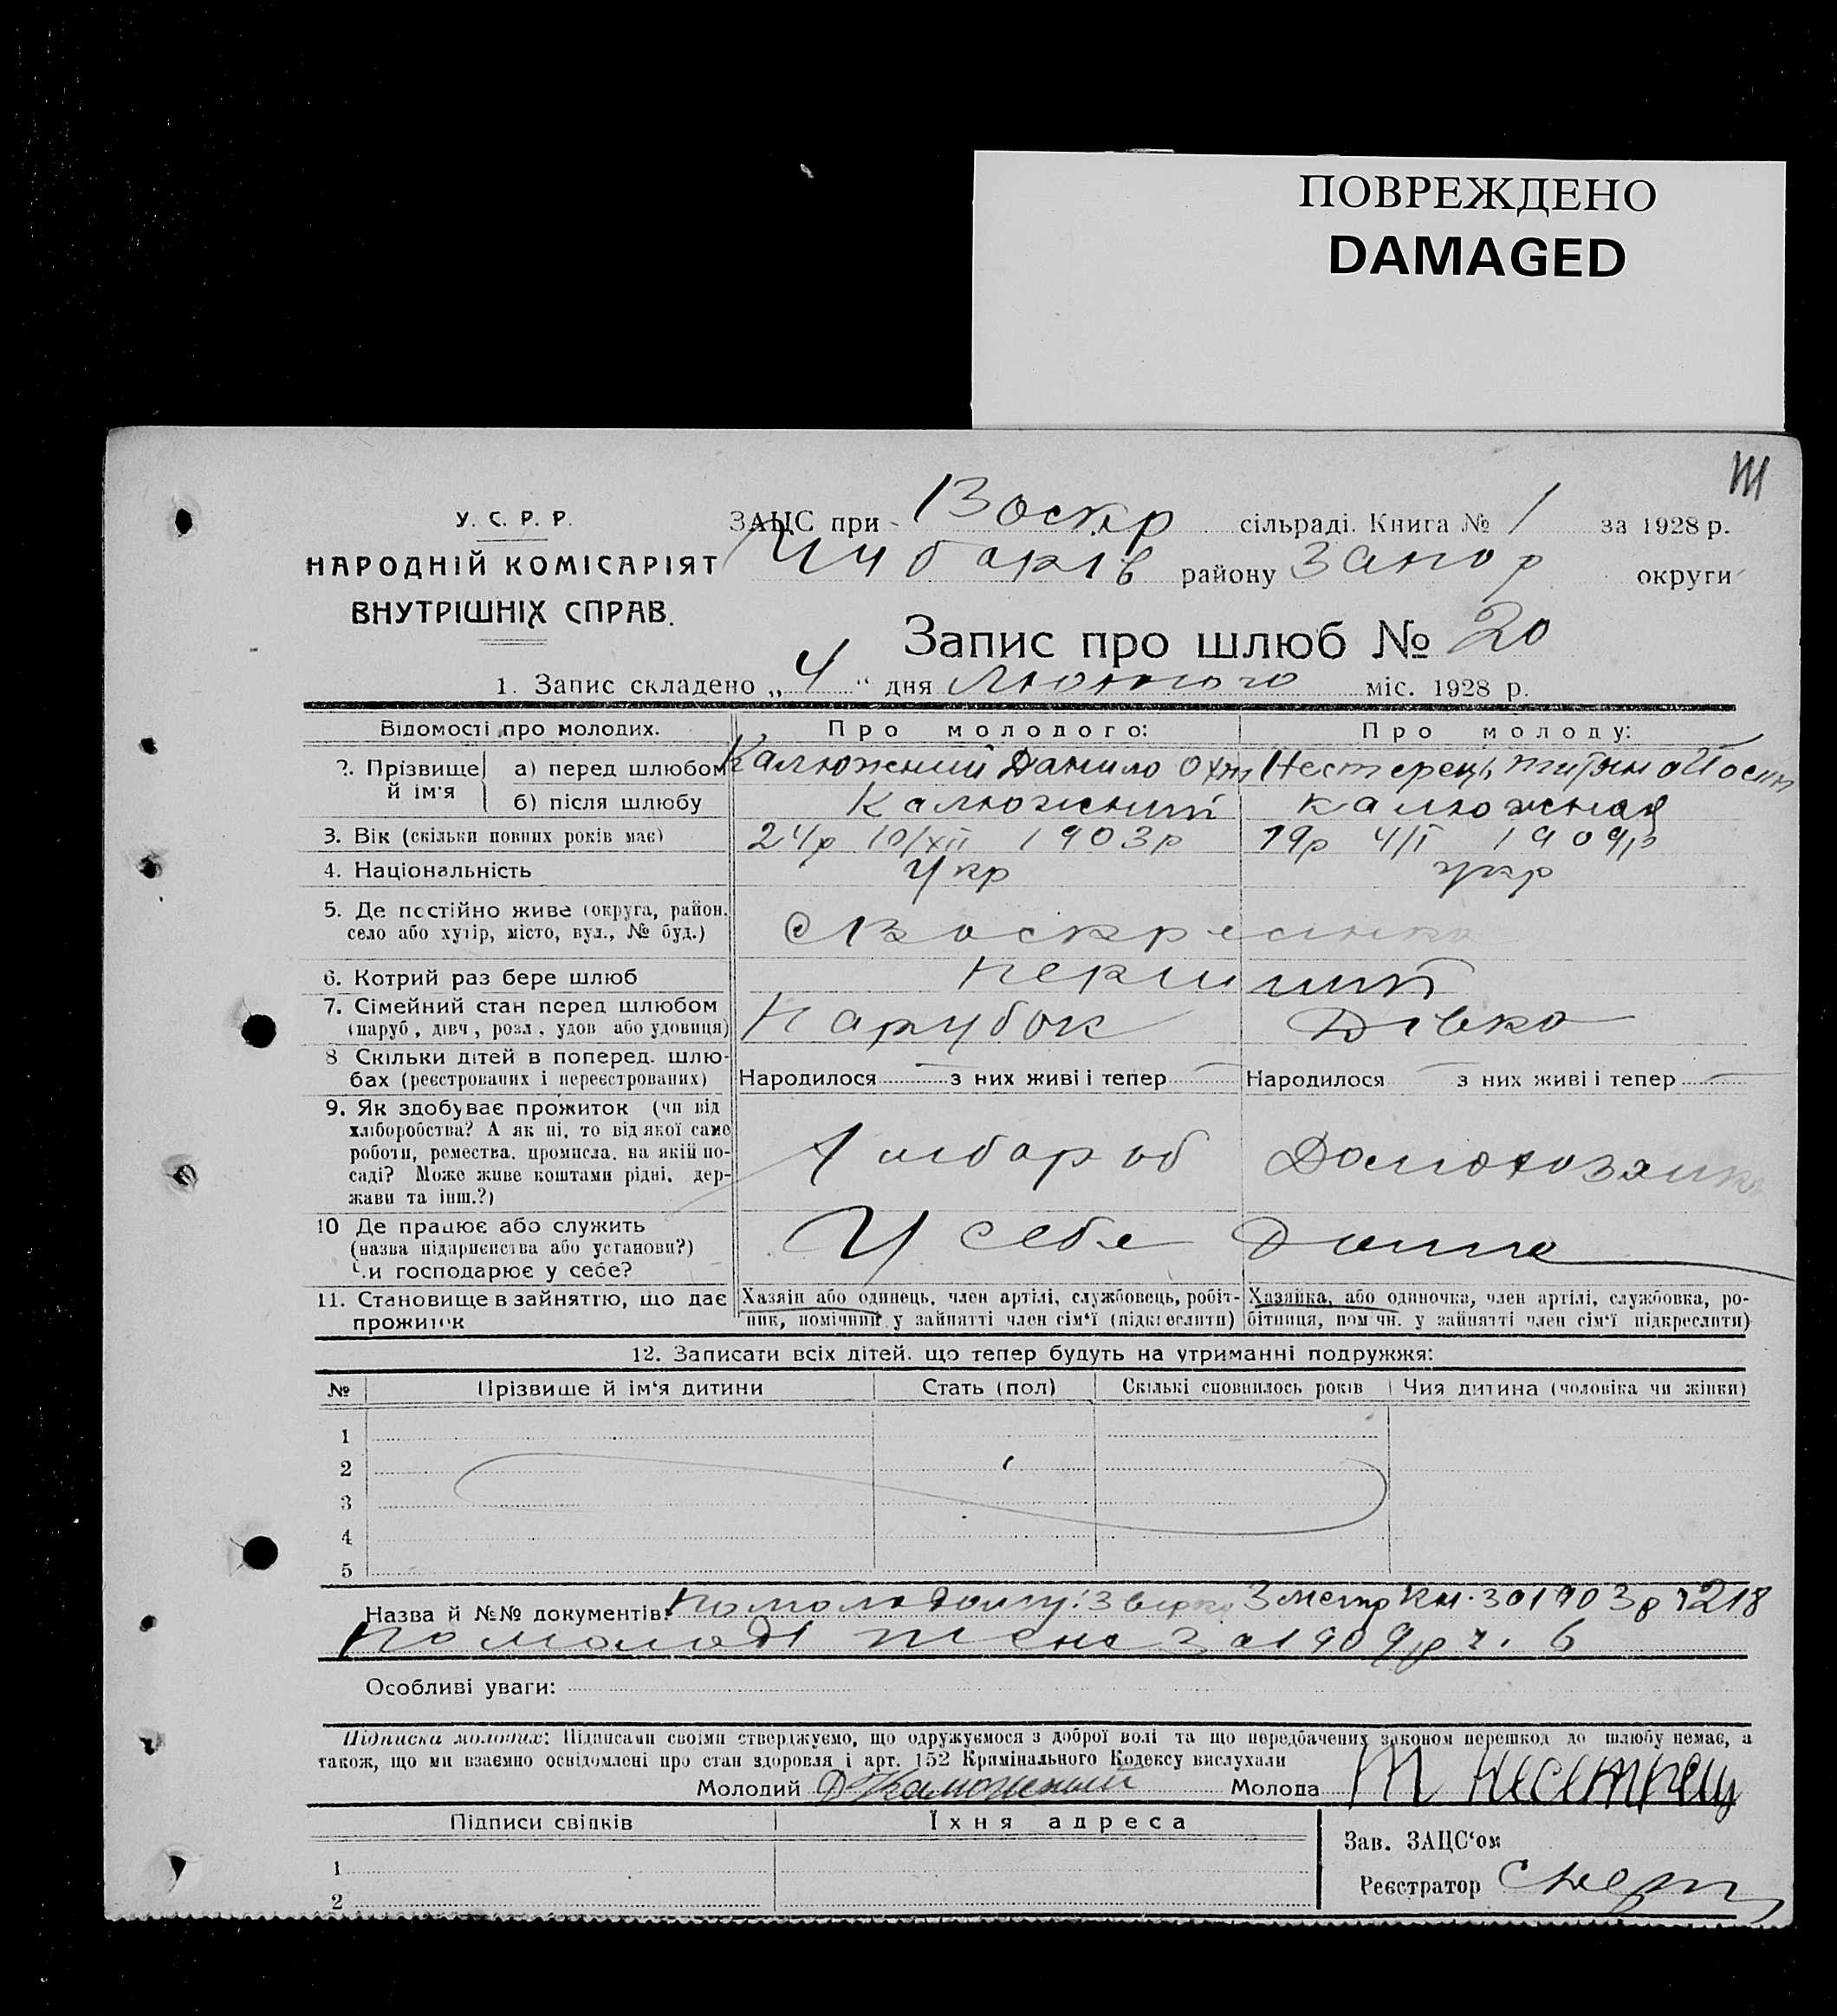 ПОВРЕЖДЕНО
DAMAGED
У. С. Р. Р.
НАРОДНІЙ КОМІСАРІЯТ
ВНУТРІШНІХ СПРАВ.
ЗАЦС при Воскр сільраді. Книга № 1 за 1928 р.
Чубарів району Запор округи
Запис про шлюб № 20
1. Запис складено „4“ дня Лютого міс. 1928 р.
Відомості про молодих. Про молодого: Про молоду:
2. Прізвище й ім'я а) перед шлюбом Калюжний Данило Охт Нестерець Титяна Йосип
б) після шлюбу Калюжний Калюжная
3. Вік (скільки повних років має) 24р 10/XII 1903р 19р 4/I 1909р
4. Національність Укр укр
5. Де постійно живе (округа, район,
село або хутір, місто, вул., № буд.) с Воскресінка
6. Котрий раз бере шлюб перший
7. Сімейний стан перед шлюбом
(паруб., дівч., розл., удов. або удовиця) Парубок Дівка
8 Скільки дітей в поперед. шлю-
бах (реєстрованих і нереєстрованих) Народилося — з них живі і тепер — Народилося — з них живі і тепер —
9. Як здобуває прожиток (чи від
хліборобства? А як ні, то від якої саме
роботи, ремества, промисла, на якій по-
саді? Може живе коштами рідні, дер-
жави та інш.?) Хлібороб Домохозяйка
10 Де працює або служить
(назва підприємства або установи?)
Чи господарює у себе? У себе Дома
11. Становище в зайняттю, що дає
прожиток
Хазяїн або одинець, член артілі, службовець, робіт-
ник, помічний у зайнятті член сім'ї (підкреслити)
Хазяйка, або одиночка, член артілі, службовка, ро-
бітниця, пом чн. у зайнятті член сім'ї підкреслити)
12. Записати всіх дітей, що тепер будуть на утриманні подружжя:
№ Прізвище й ім'я дитини Стать (пол) Скількі сповнилось років Чия дитина (чоловіка чи жінки)
1
2
3
4
5
Назва й №№ документів: по молодому: З метр кн. за 1903р ч 218
по молоді теж за 1909р ч. 6
Особливі уваги:
Підписка молодих: Підписами своїми стверджуємо, що одружуємося з доброї волі та що передбачених законом перешкод до шлюбу немає, а
також, що ми взаємно освідомлені про стан здоровля і арт. 152 Кримінального Кодексу вислухали
Молодий Д Калюжний Молода Т Несетрець
Підписи свідків Їхня адреса
Зав. ЗАЦС'ом
1
Реєстратор
2